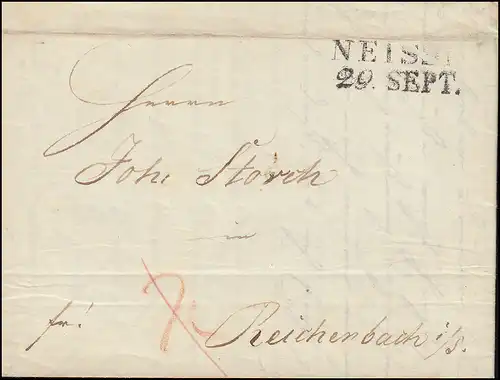 NEISSE
29. SEPT.
Herrn
Joh. Storch
in
fr. Reichenbach i/S.